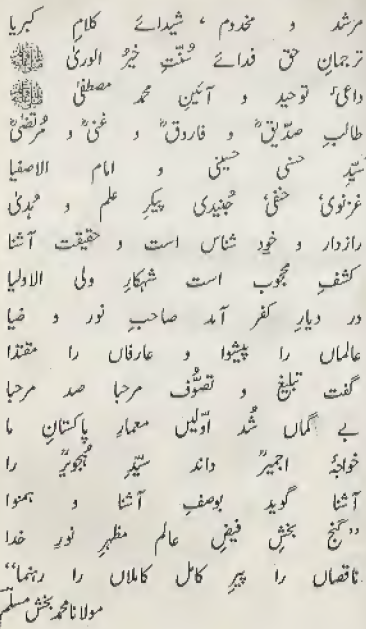 مرشد و مخدوم ، شیدائے کلامِ کبریا
ترجمانِ حق فدائے سُنّتِ خیرُ الوریٰ ﷺ
داعیٔ توحید و آئینِ محمد مصطفیٰ ﷺ
طالبِ صدّیقؓ و فاروقؓ و غنیؓ و مُرتضیٰؓ
سیّدِ حسنی حسینی و امام الاصفیا
غزنویٔ حنفیٔ جُنیدی پیکرِ علم و ہُدیٰ
رازدار و خود شناس است و حقیقت آشنا
کشفِ محجوب است شہکارِ ولی الاولیا
در دیارِ کفر آمد صاحبِ نور و ضیا
عالماں را پیشوا و عارفاں را مقتدا
گفت تبلیغ و تصوُّف مرحبا صد مرحبا
بے گماں شُد اوّلیں معمارِ پاکستانِ ما
خواجۂ اجمیرؒ داند سیّدِ ہجویرؒ را
آشنا گوید بوصفِ آشنا و ہمنوا
”گنج بخشِ فیضِ عالم مظہرِ نورِ خدا
ناقصاں را پیرِ کامل کاملاں را رہنما“
مولانا محمد بخش مسلمؔ